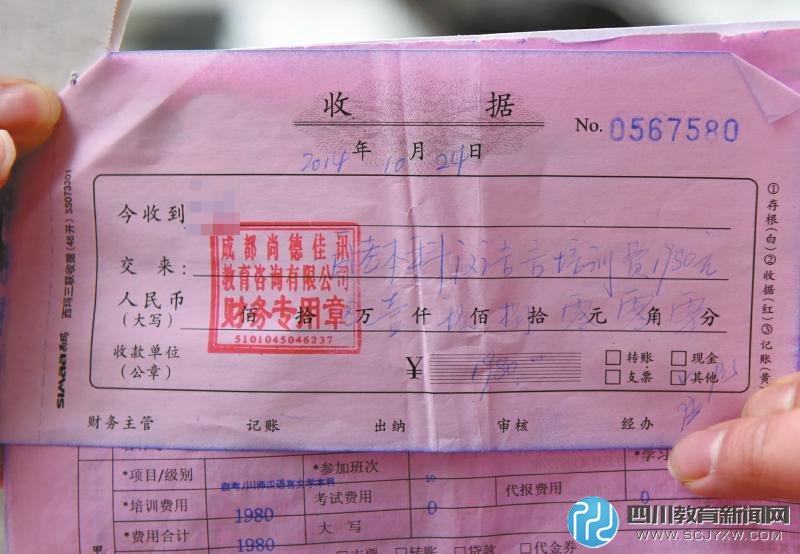 收 据
No. 0567580
2014 年 10 月 24 日
今收到
交来: 自考本科汉语言培训费1980元
人民币
(大写)
佰 拾 万 壹 仟 佰 拾 零 元 零 角 零 分
收款单位
(公章)
¥ 1980
转账 现金
支票 其他
财务主管 记账 出纳 审核 经办
成都尚德佳讯
教育咨询有限公司
财务专用章
5101045046237
SIMAA 西玛 西玛三联收据(48开) SS073301
①存根(白)②收据(红)③记账(黄)
*项目/级别 自考/川师汉语言文学本科 *参加班次 *学习
*培训费用 1980 考试费用 0 代报费用 0
*费用合计 1980 大 写
支票 转账 贷款 代金券
四川教育新闻网
WWW.SCJYXW.COM